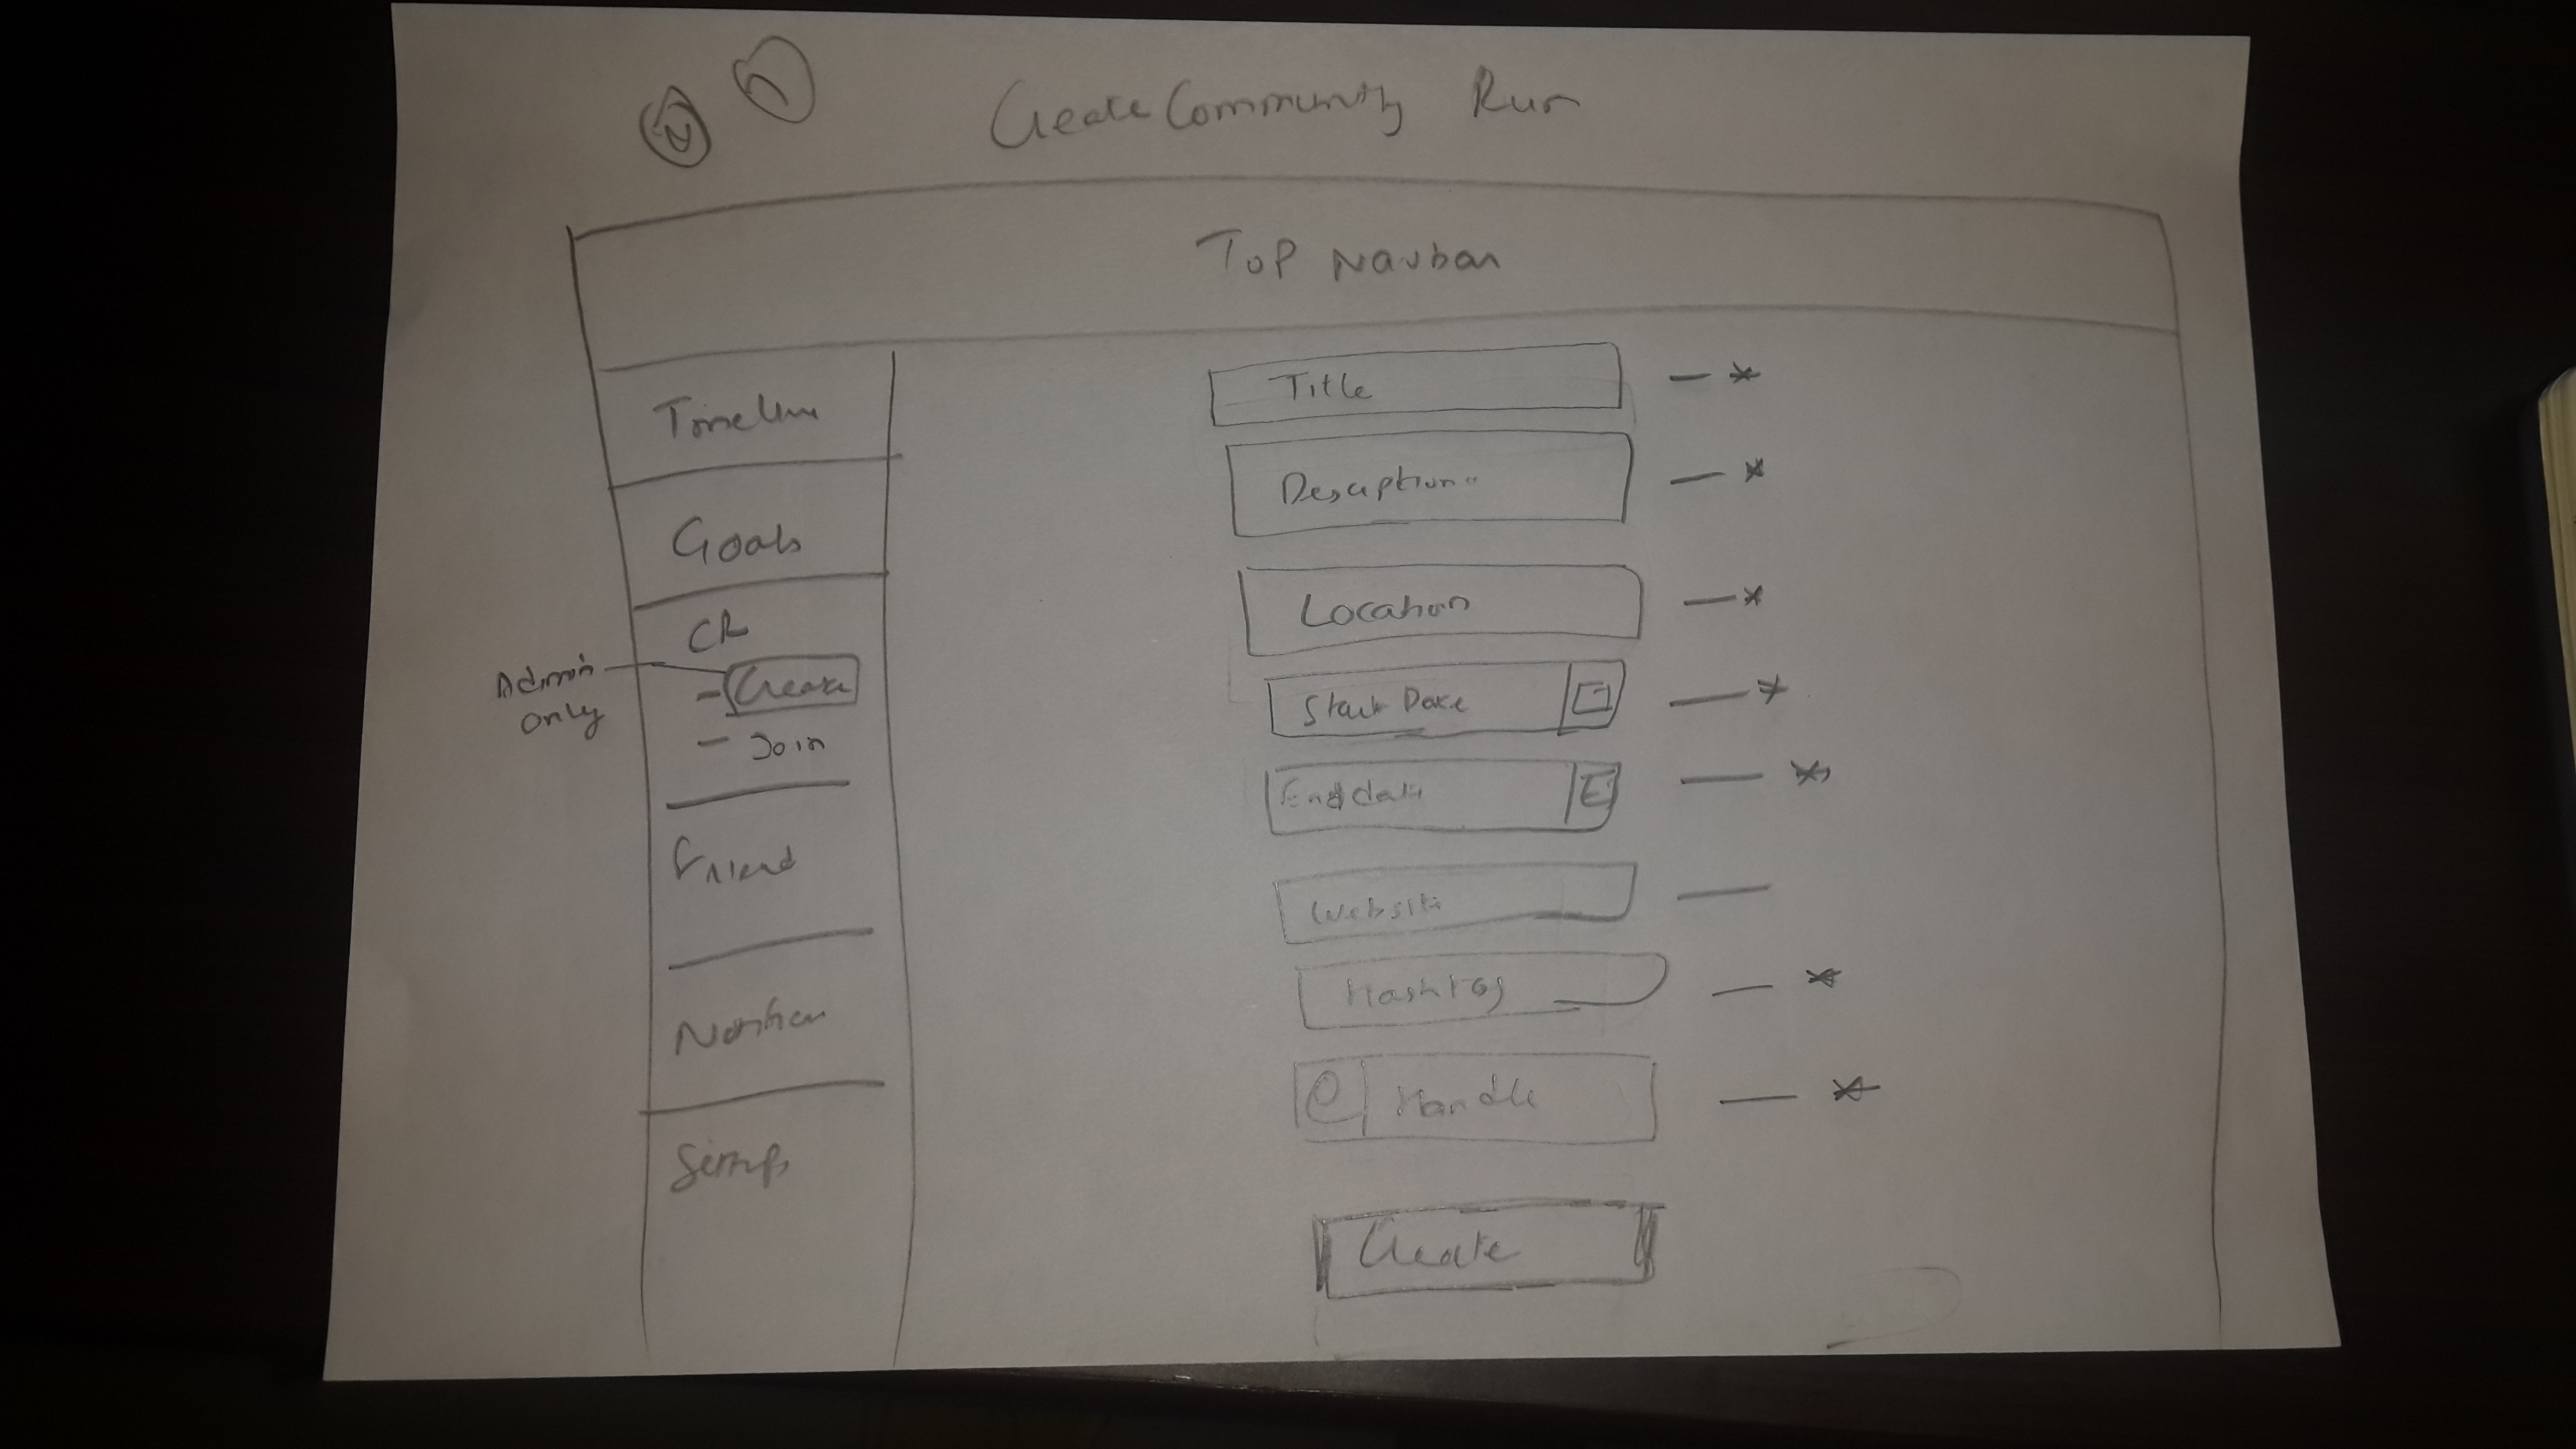 Create Community Run
Top Navbar
Timeline
Goals
CR
Admin
only
- Create
- Join
Friend
Title - *
Description - *
Location - *
Start Date - *
End date - *
Website -
Hashtag - *
@ Handle - *
Create